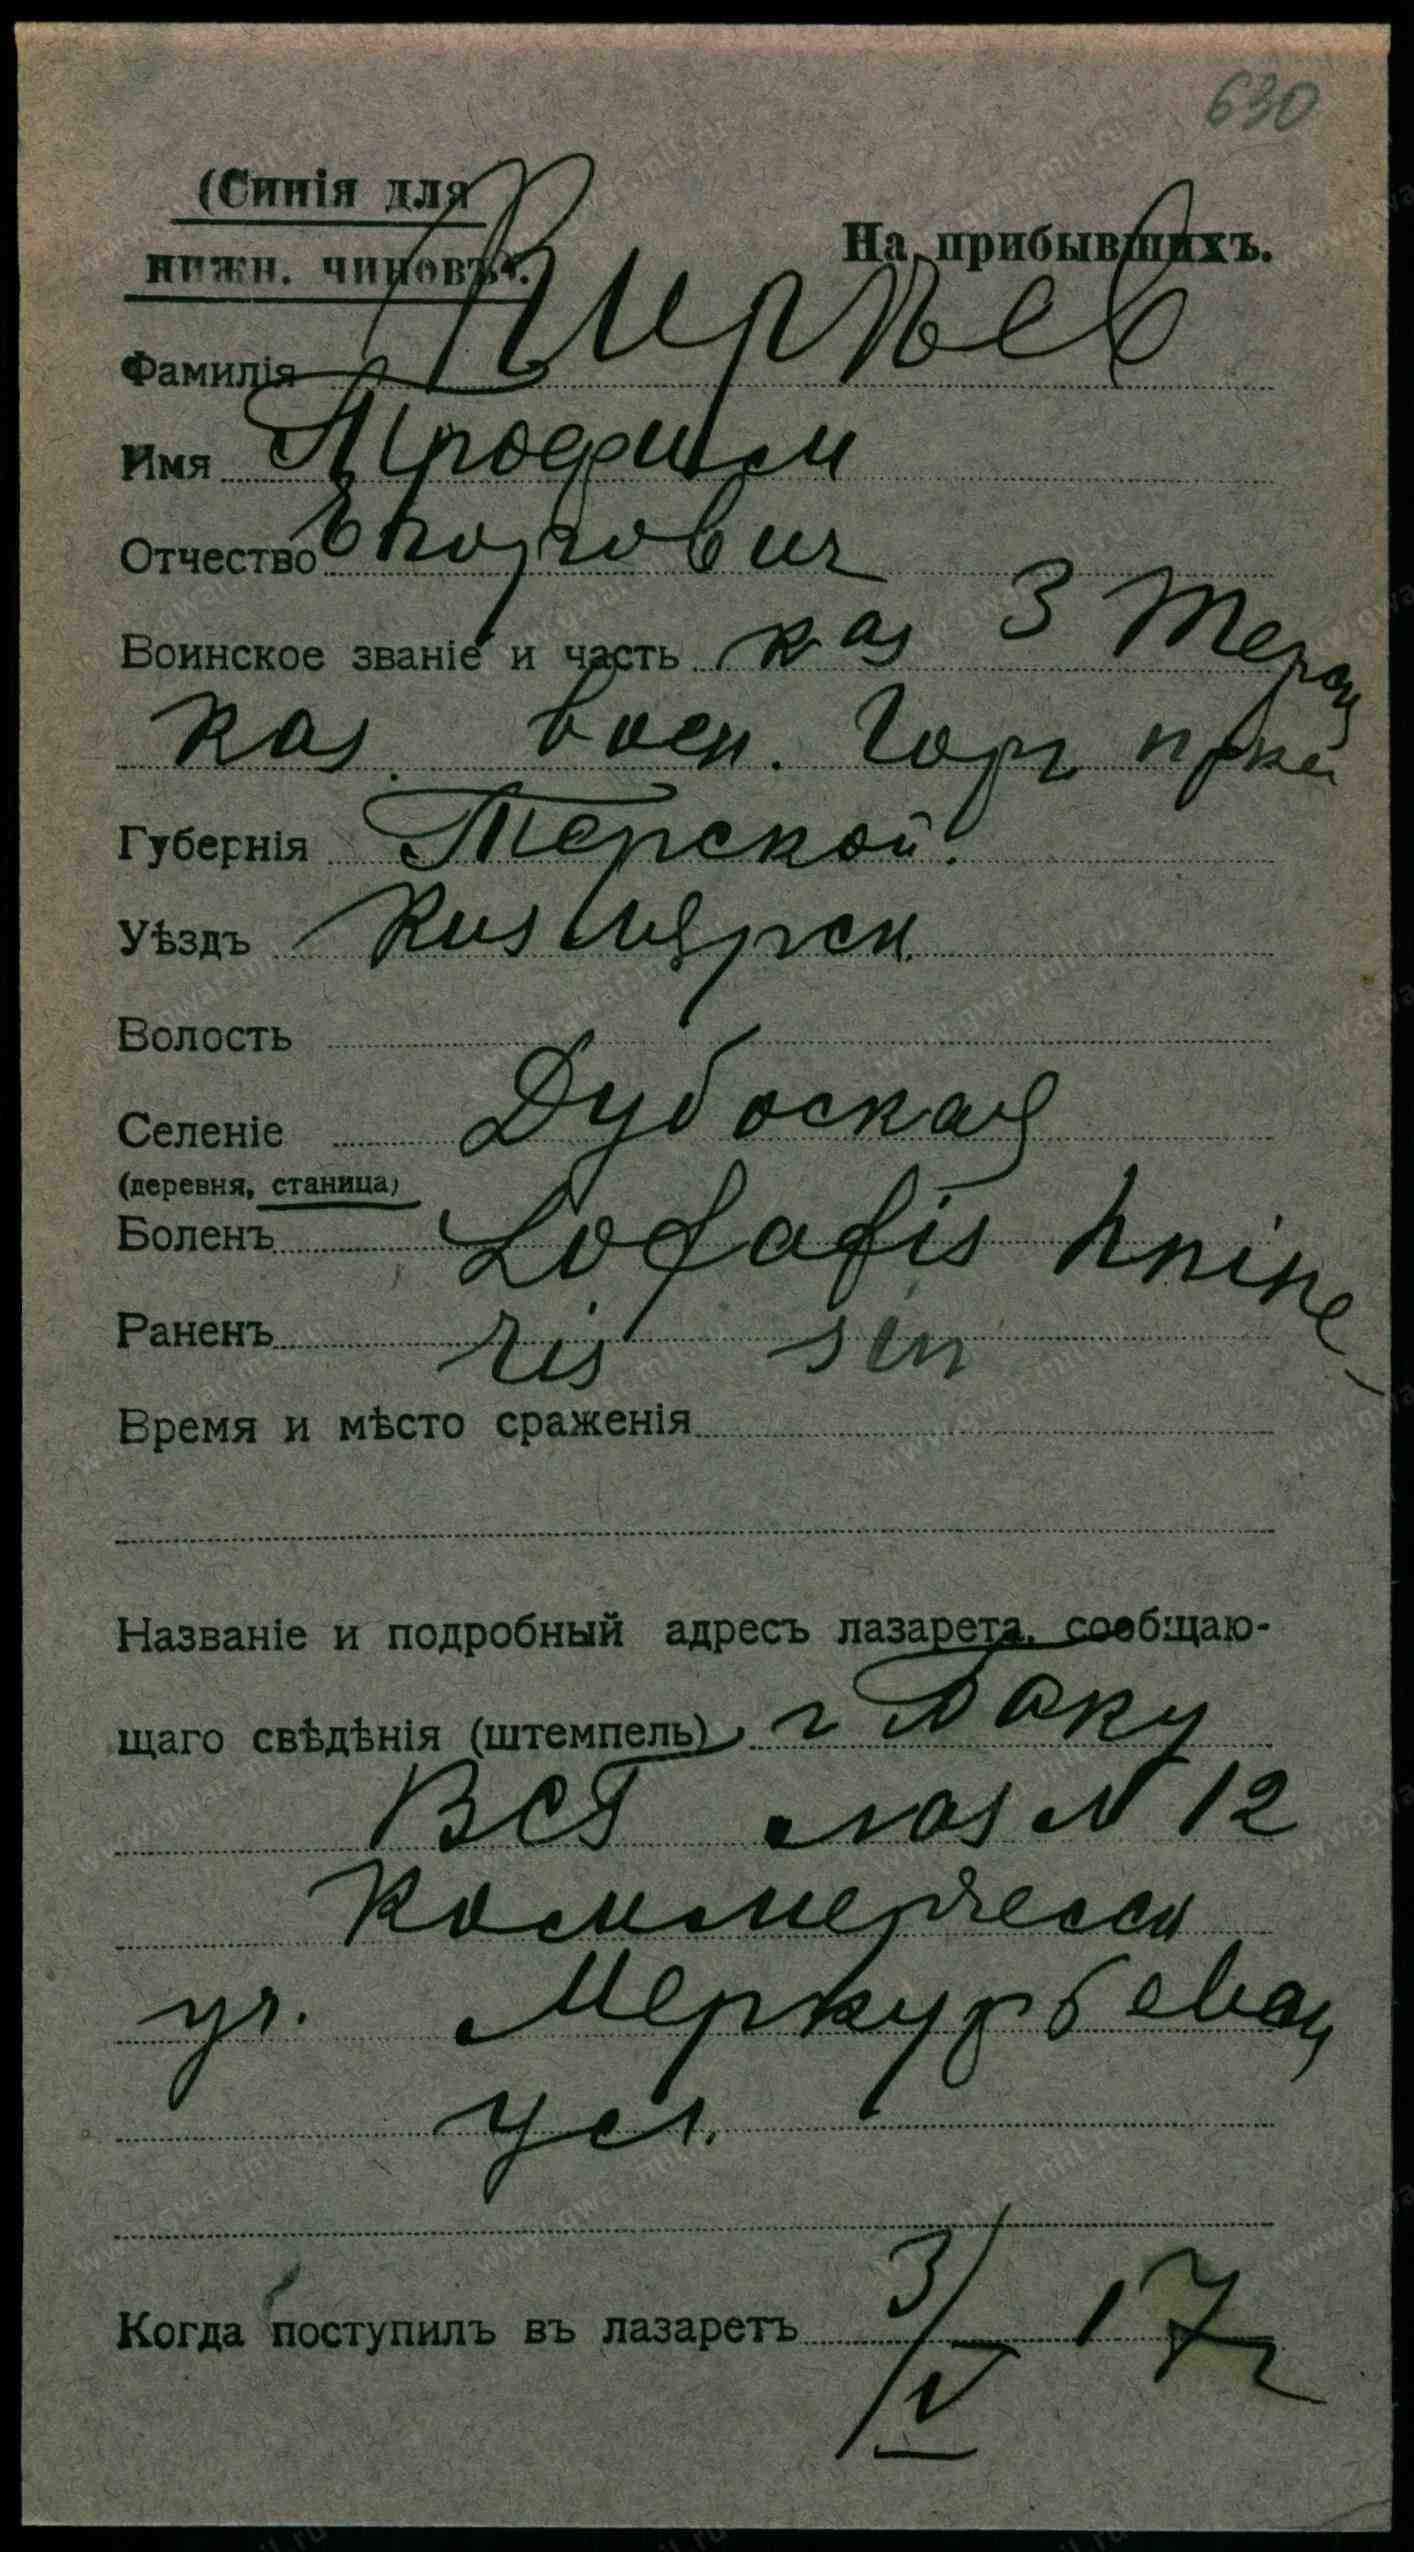 630
(Синія для
нижн. чиновъ).
На прибывшихъ.
Фамилія Кирѣев
Имя Трофим
Отчество Егорович
Воинское званіе и часть каз 3 Терск
каз. воен. Горн
Губернія Терской.
Уѣздъ Кизлярск.
Волость
Селеніе Дубоская
(деревня, станица)
Боленъ
Раненъ ris sin
Время и мѣсто сраженія
Названіе и подробный адресъ лазарета, сообщаю-
щаго свѣдѣнія (штемпель) г Баку
ВСГ лаз N 12
Коммерческ
уч. Меркурьевск
Когда поступилъ въ лазаретъ 3/V 17